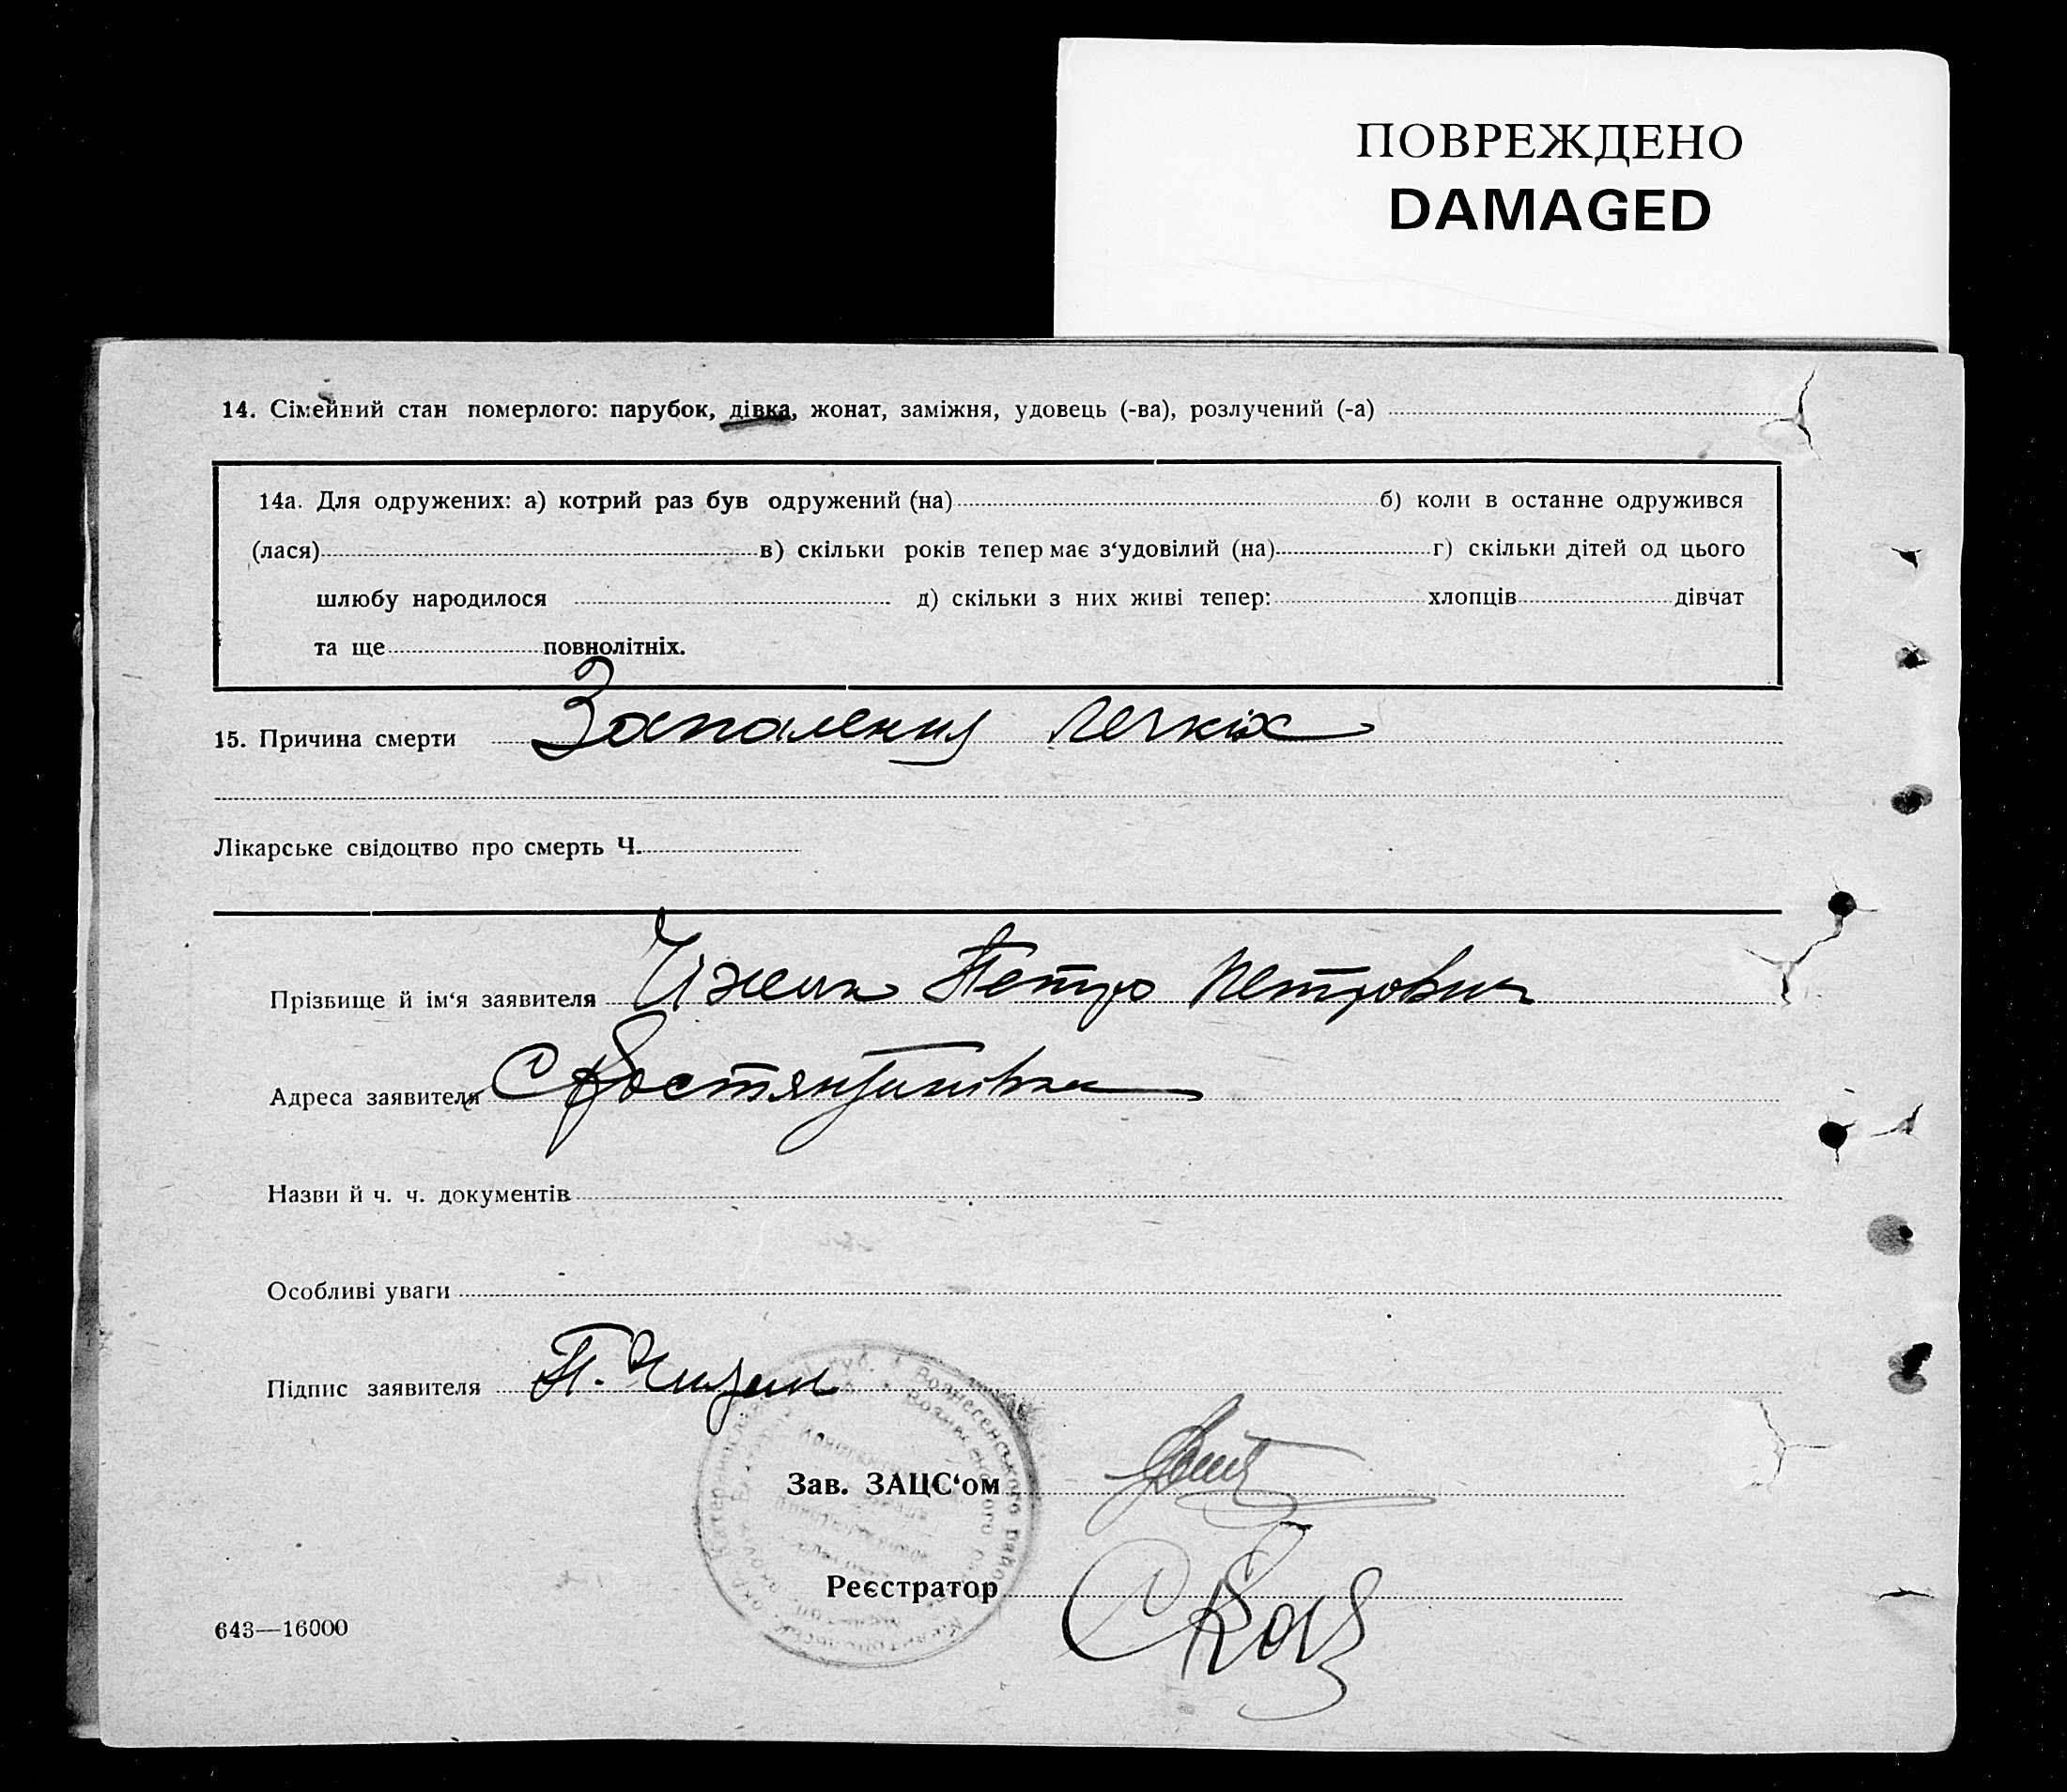 ПОВРЕЖДЕНО
DAMAGED
14. Сімейний стан померлого: парубок, дівка, жонат, заміжня, удовець (-ва), розлучений (-а)
14а. Для одружених: а) котрий раз був одружений (на) б) коли в останне одружився
(лася) в) скільки років тепер має з‘удовілий (на) г) скільки дітей од цього
шлюбу народилося д) скільки з них живі тепер: хлопців дівчат
та ще повнолітніх.
15. Причина смерти Запаления легкіх
Лікарське свідоцтво про смерть Ч.
Прізвище й ім‘я заявителя Петро Петрович
Адреса заявителя С Костянтинівка
Назви й ч. ч. документів
Особливі уваги
Підпис заявителя П.
Зав. ЗАЦС‘ом
Реєстратор
643—16000